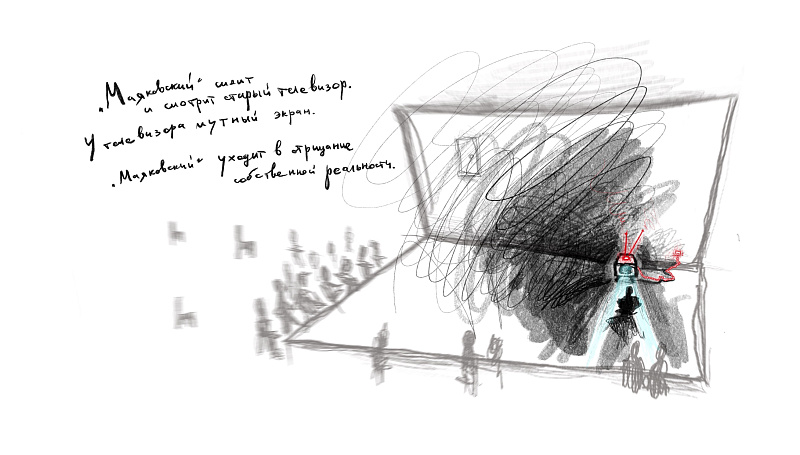 „Маяковский“ сидит
и смотрит старый телевизор.
У телевизора мутный экран.
„Маяковский“ уходит в отрицание
собственной реальности.